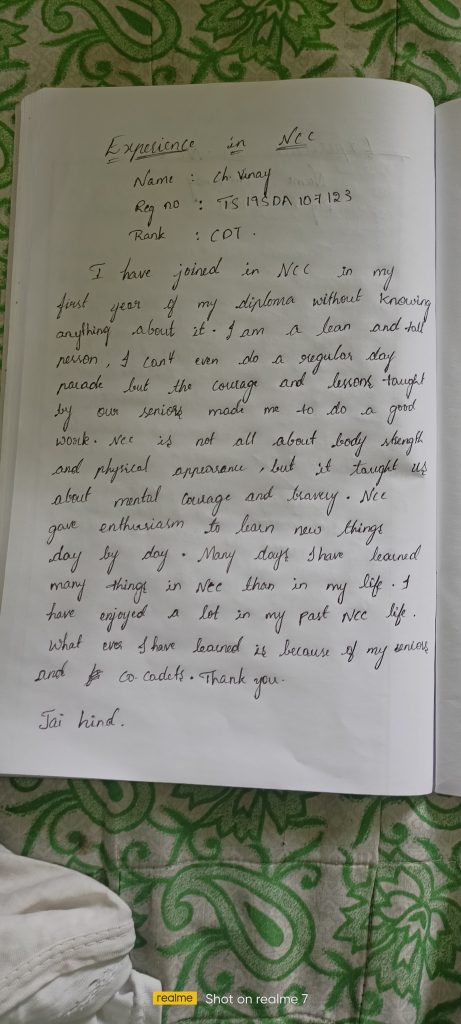 Experience in NCC
Name : Ch. Vinay
Reg no : TS19SDA107123
Rank : CDT.
I have joined in NCC in my
first year of my diploma without knowing
anything about it. I am a lean and tall
person, I can't even do a regular day
parade but the courage and lessons taught
by our seniors made me to do a good
work. Ncc is not all about body strength
and physical appearance, but it taught us
about mental courage and bravery. Ncc
gave enthusiasm to learn new things
day by day. Many days I have learned
many things in NCC than in my life. I
have enjoyed a lot in my past NCC life.
What ever I have learned is because of my seniors
and co-cadets. Thank you.
Jai hind.
realme Shot on realme 7